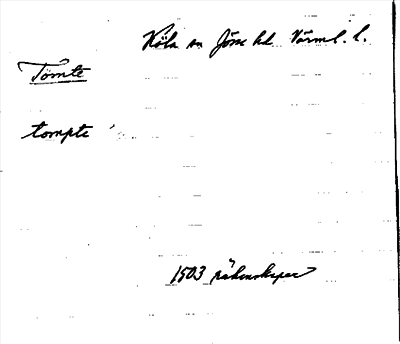 Köla sn Jösse hd Värml. l.
Tömte
tompte
1503 räkenskaper